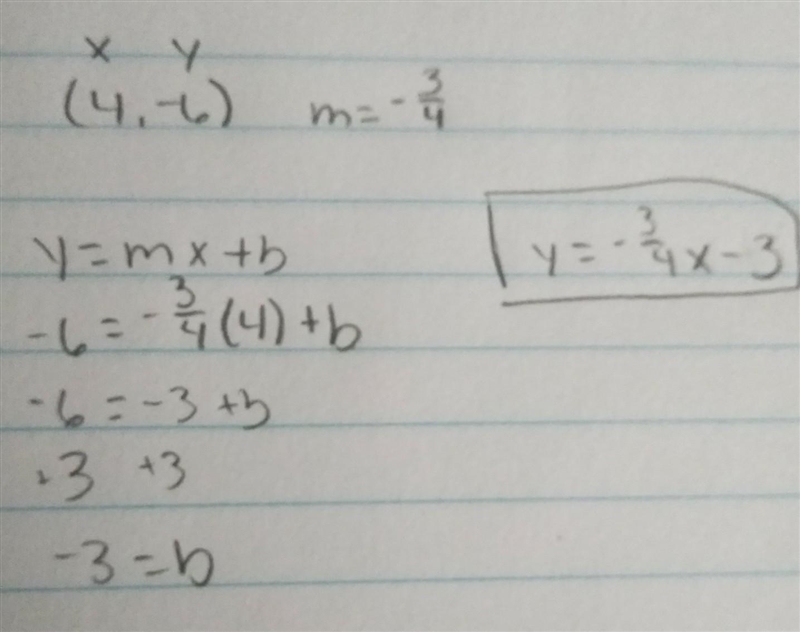 x y
(4, -6) m = -3/4
y = mx + b
-6 = -3/4(4) + b
-6 = -3 + b
+3 +3
-3 = b
y = -3/4x - 3